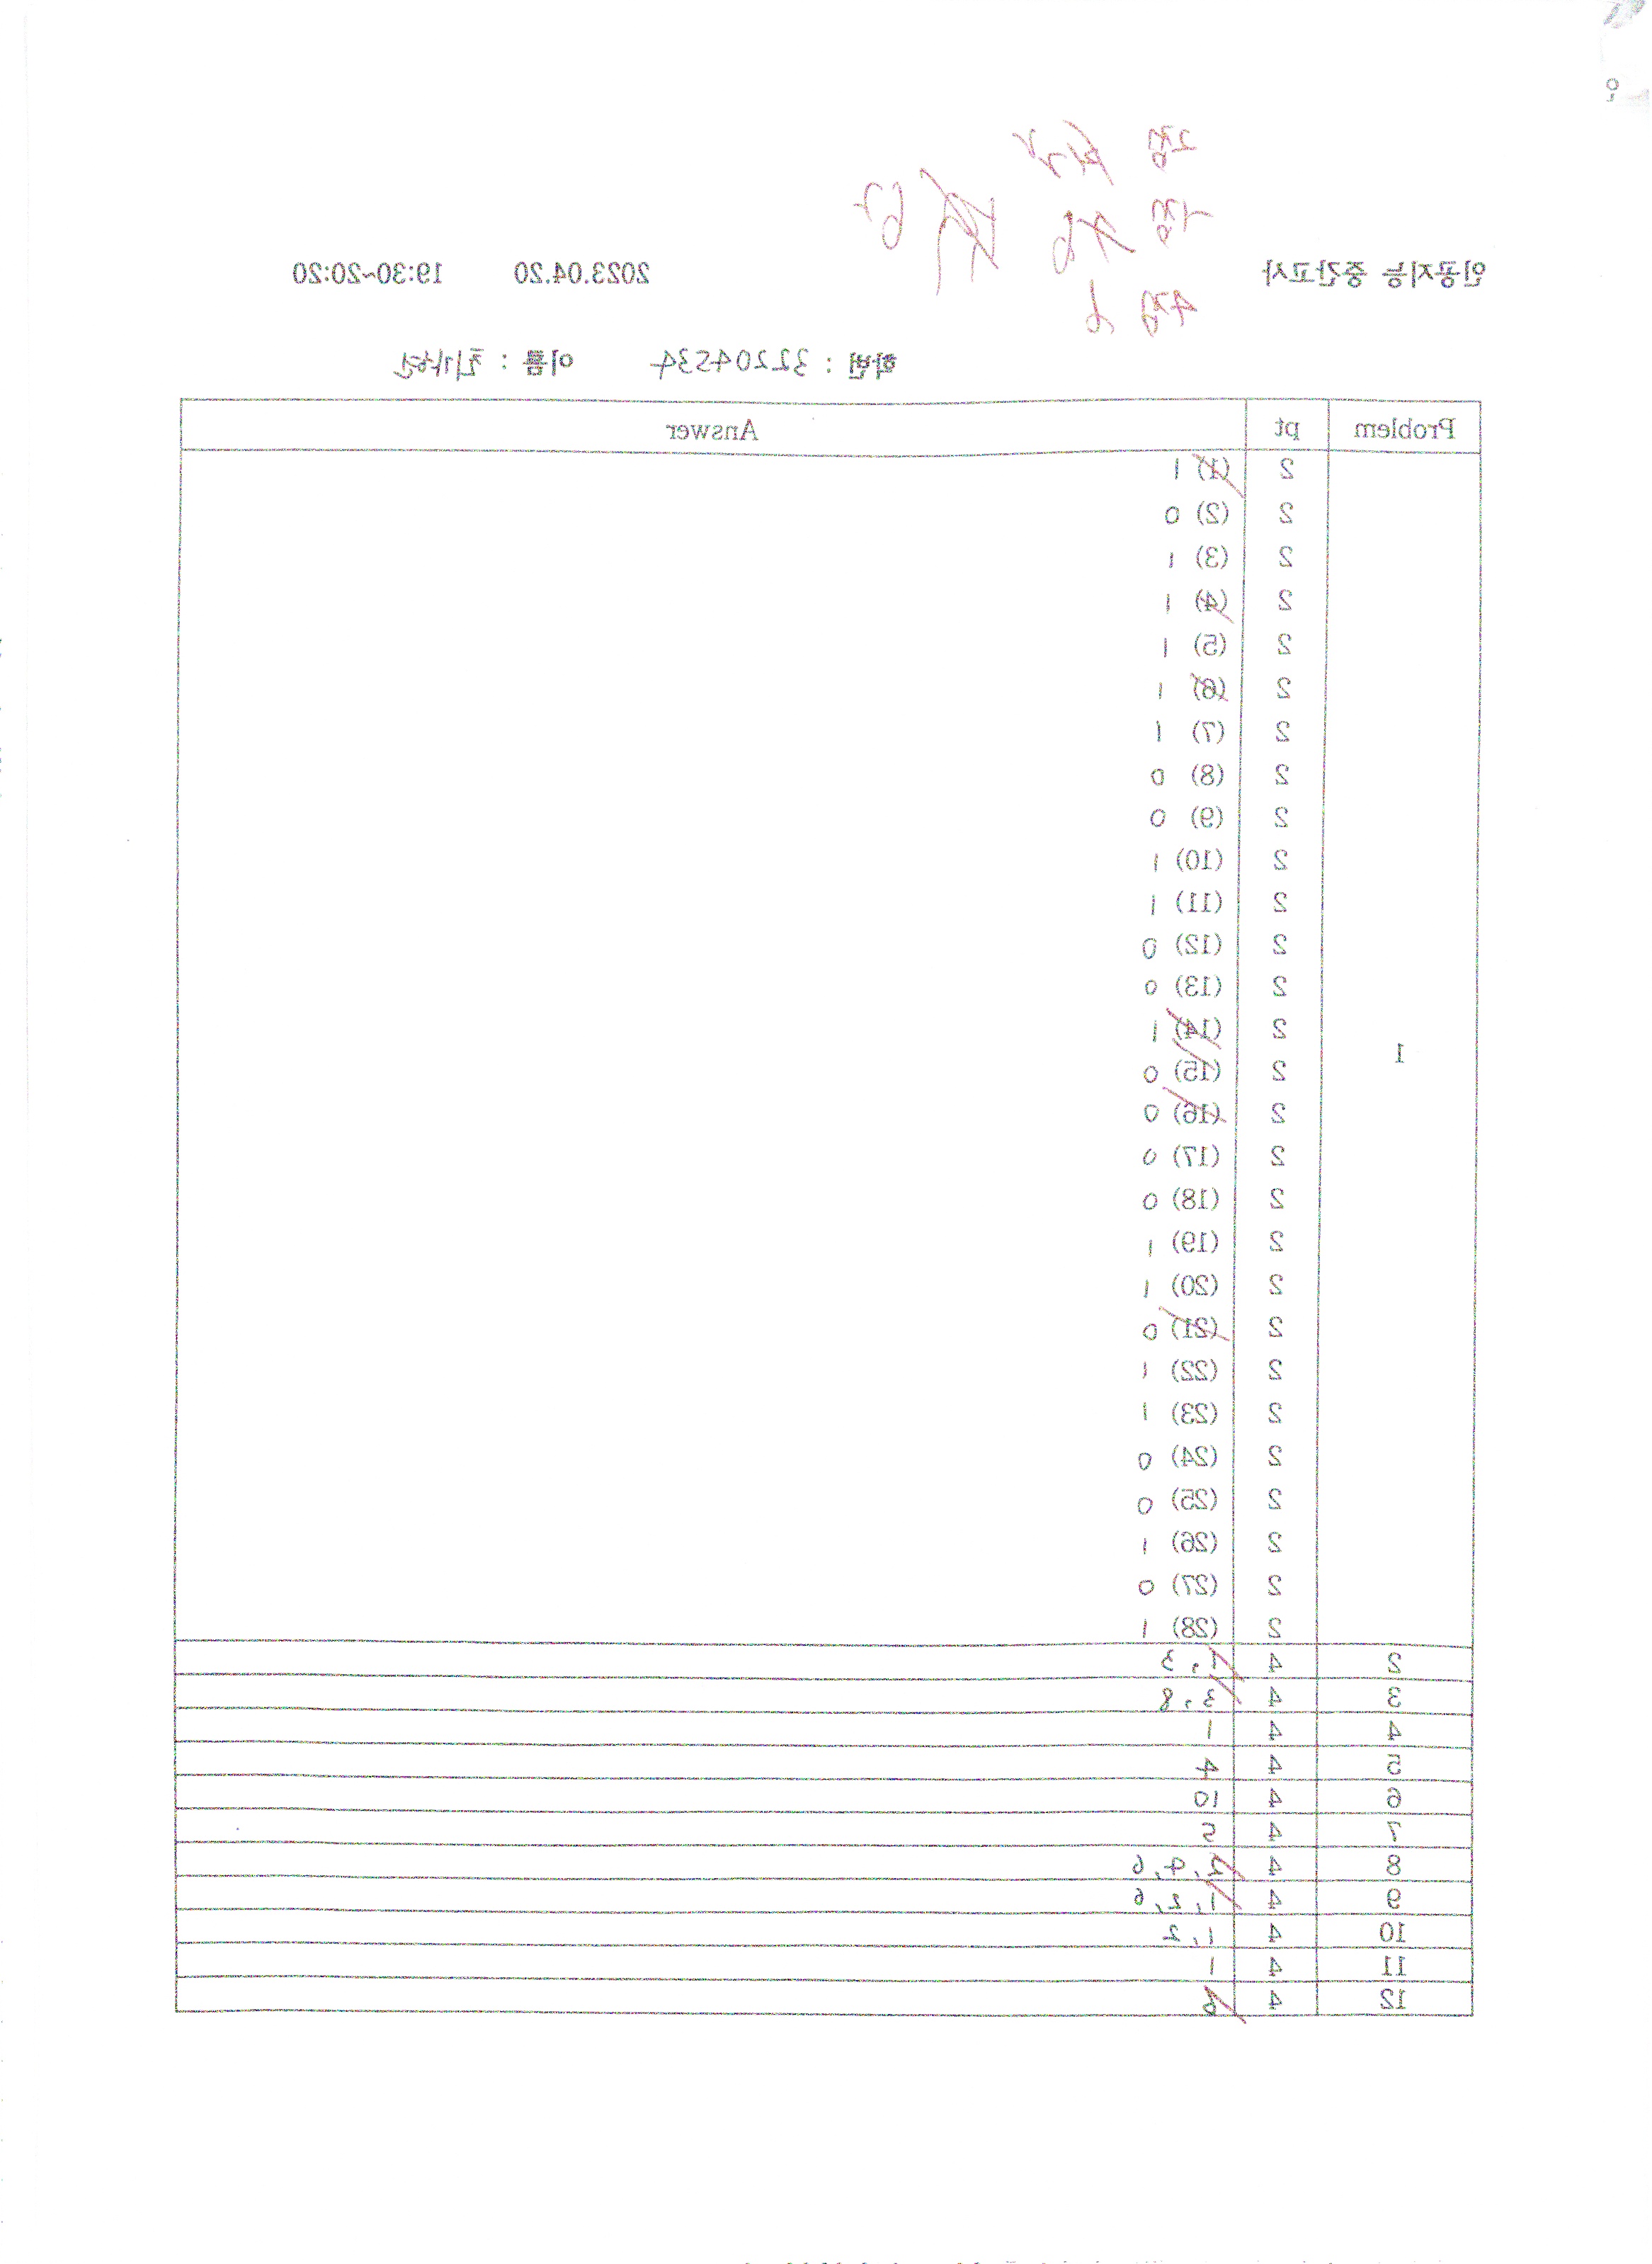 2점
1점
4점 6
인공지능 중간고사 2023.04.20 19:30~20:20
학번 : 32204534 이름 :
Problem pt Answer
1
2 (1) 1
2 (2) 0
2 (3) 1
2 (4) 1
2 (5) 1
2 (6) 1
2 (7) 1
2 (8) 0
2 (9) 0
2 (10) 1
2 (11) 1
2 (12) 0
2 (13) 0
2 (14) 1
2 (15) 0
2 (16) 0
2 (17) 0
2 (18) 0
2 (19) 1
2 (20) 1
2 (21) 0
2 (22) 1
2 (23) 1
2 (24) 0
2 (25) 0
2 (26) 1
2 (27) 0
2 (28) 1
2 4 1, 3
3 4 3, 8
4 4 1
5 4 4
6 4 10
7 4 5
8 4 2, 4, 6
9 4 1, 2, 6
10 4 1, 2
11 4 1
12 4 6